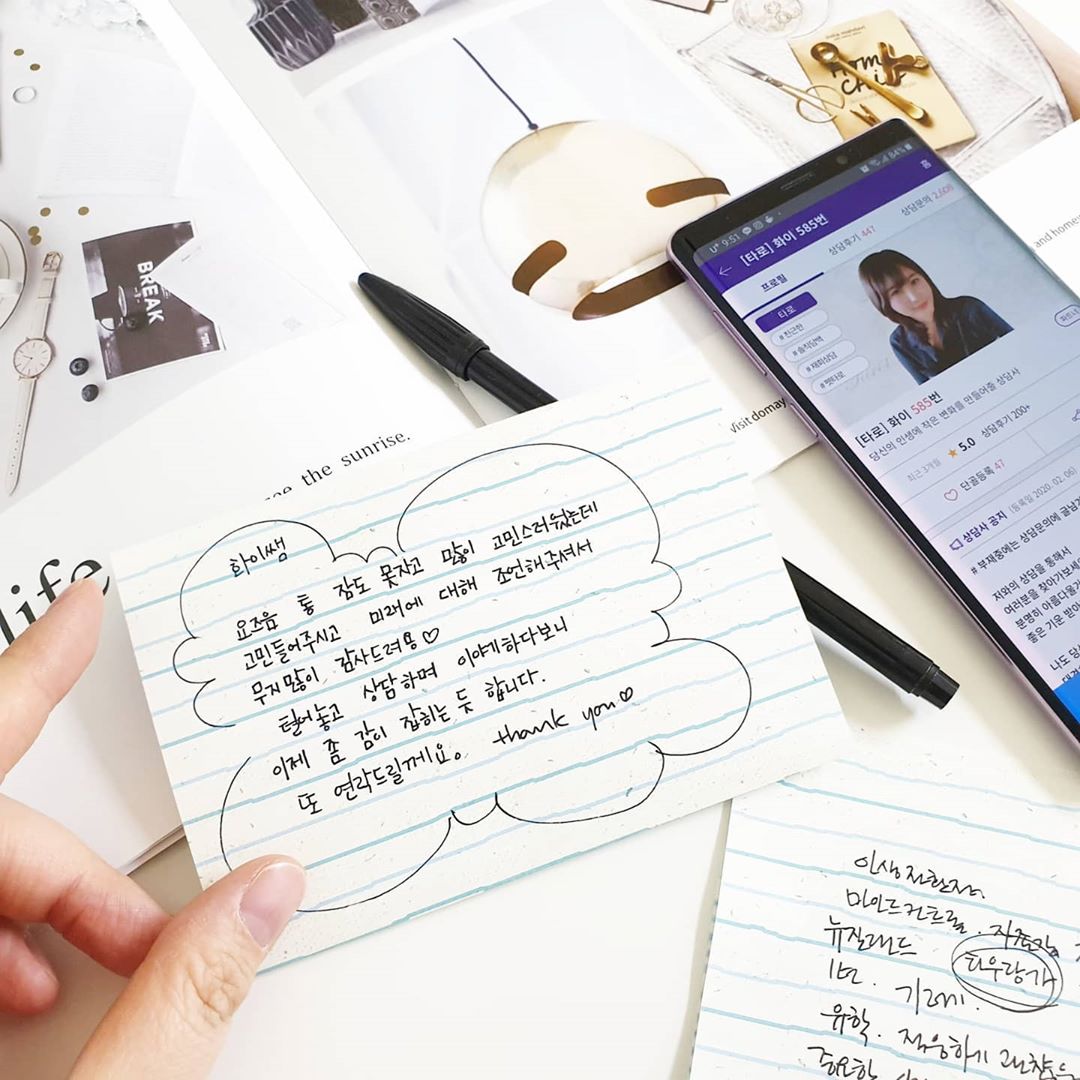 HOME
CAFE
BREAK
see the sunrise.
life
and home
Visit domay
U+ 9:51
84%
[타로] 화이 585번
홈
프로필
상담후기 447
상담문의 2,606
타로
#친근한
#솔직담백
#재회상담
#펫타로
[타로] 화이 585번
당신의 인생에 작은 변화를 만들어줄 상담사
최근3개월 5.0 상담후기 200+
단골등록 47
상담사 공지 (등록일 2020. 02. 06)
# 부재중에는 상담문의에 글남
저와의 상담을 통해서
여러분을 찾아가보세
분명히 아름다울
좋은 기운 받아
나도 당
화이쌤
요즈음 통 잠도 못자고 많이 고민스러웠는데
고민들어주시고 미래에 대해 조언해주셔서
무지많이 감사드려용♡
털어놓고 상담하며 이야기하다보니
이제 좀 감이 잡히는 듯 합니다.
또 연락드릴께요. thank you♡
인생전환점.
마인드컨트롤. 자존감
뉴질랜드 타우랑가
1년.
유학. 적응하기
중요한